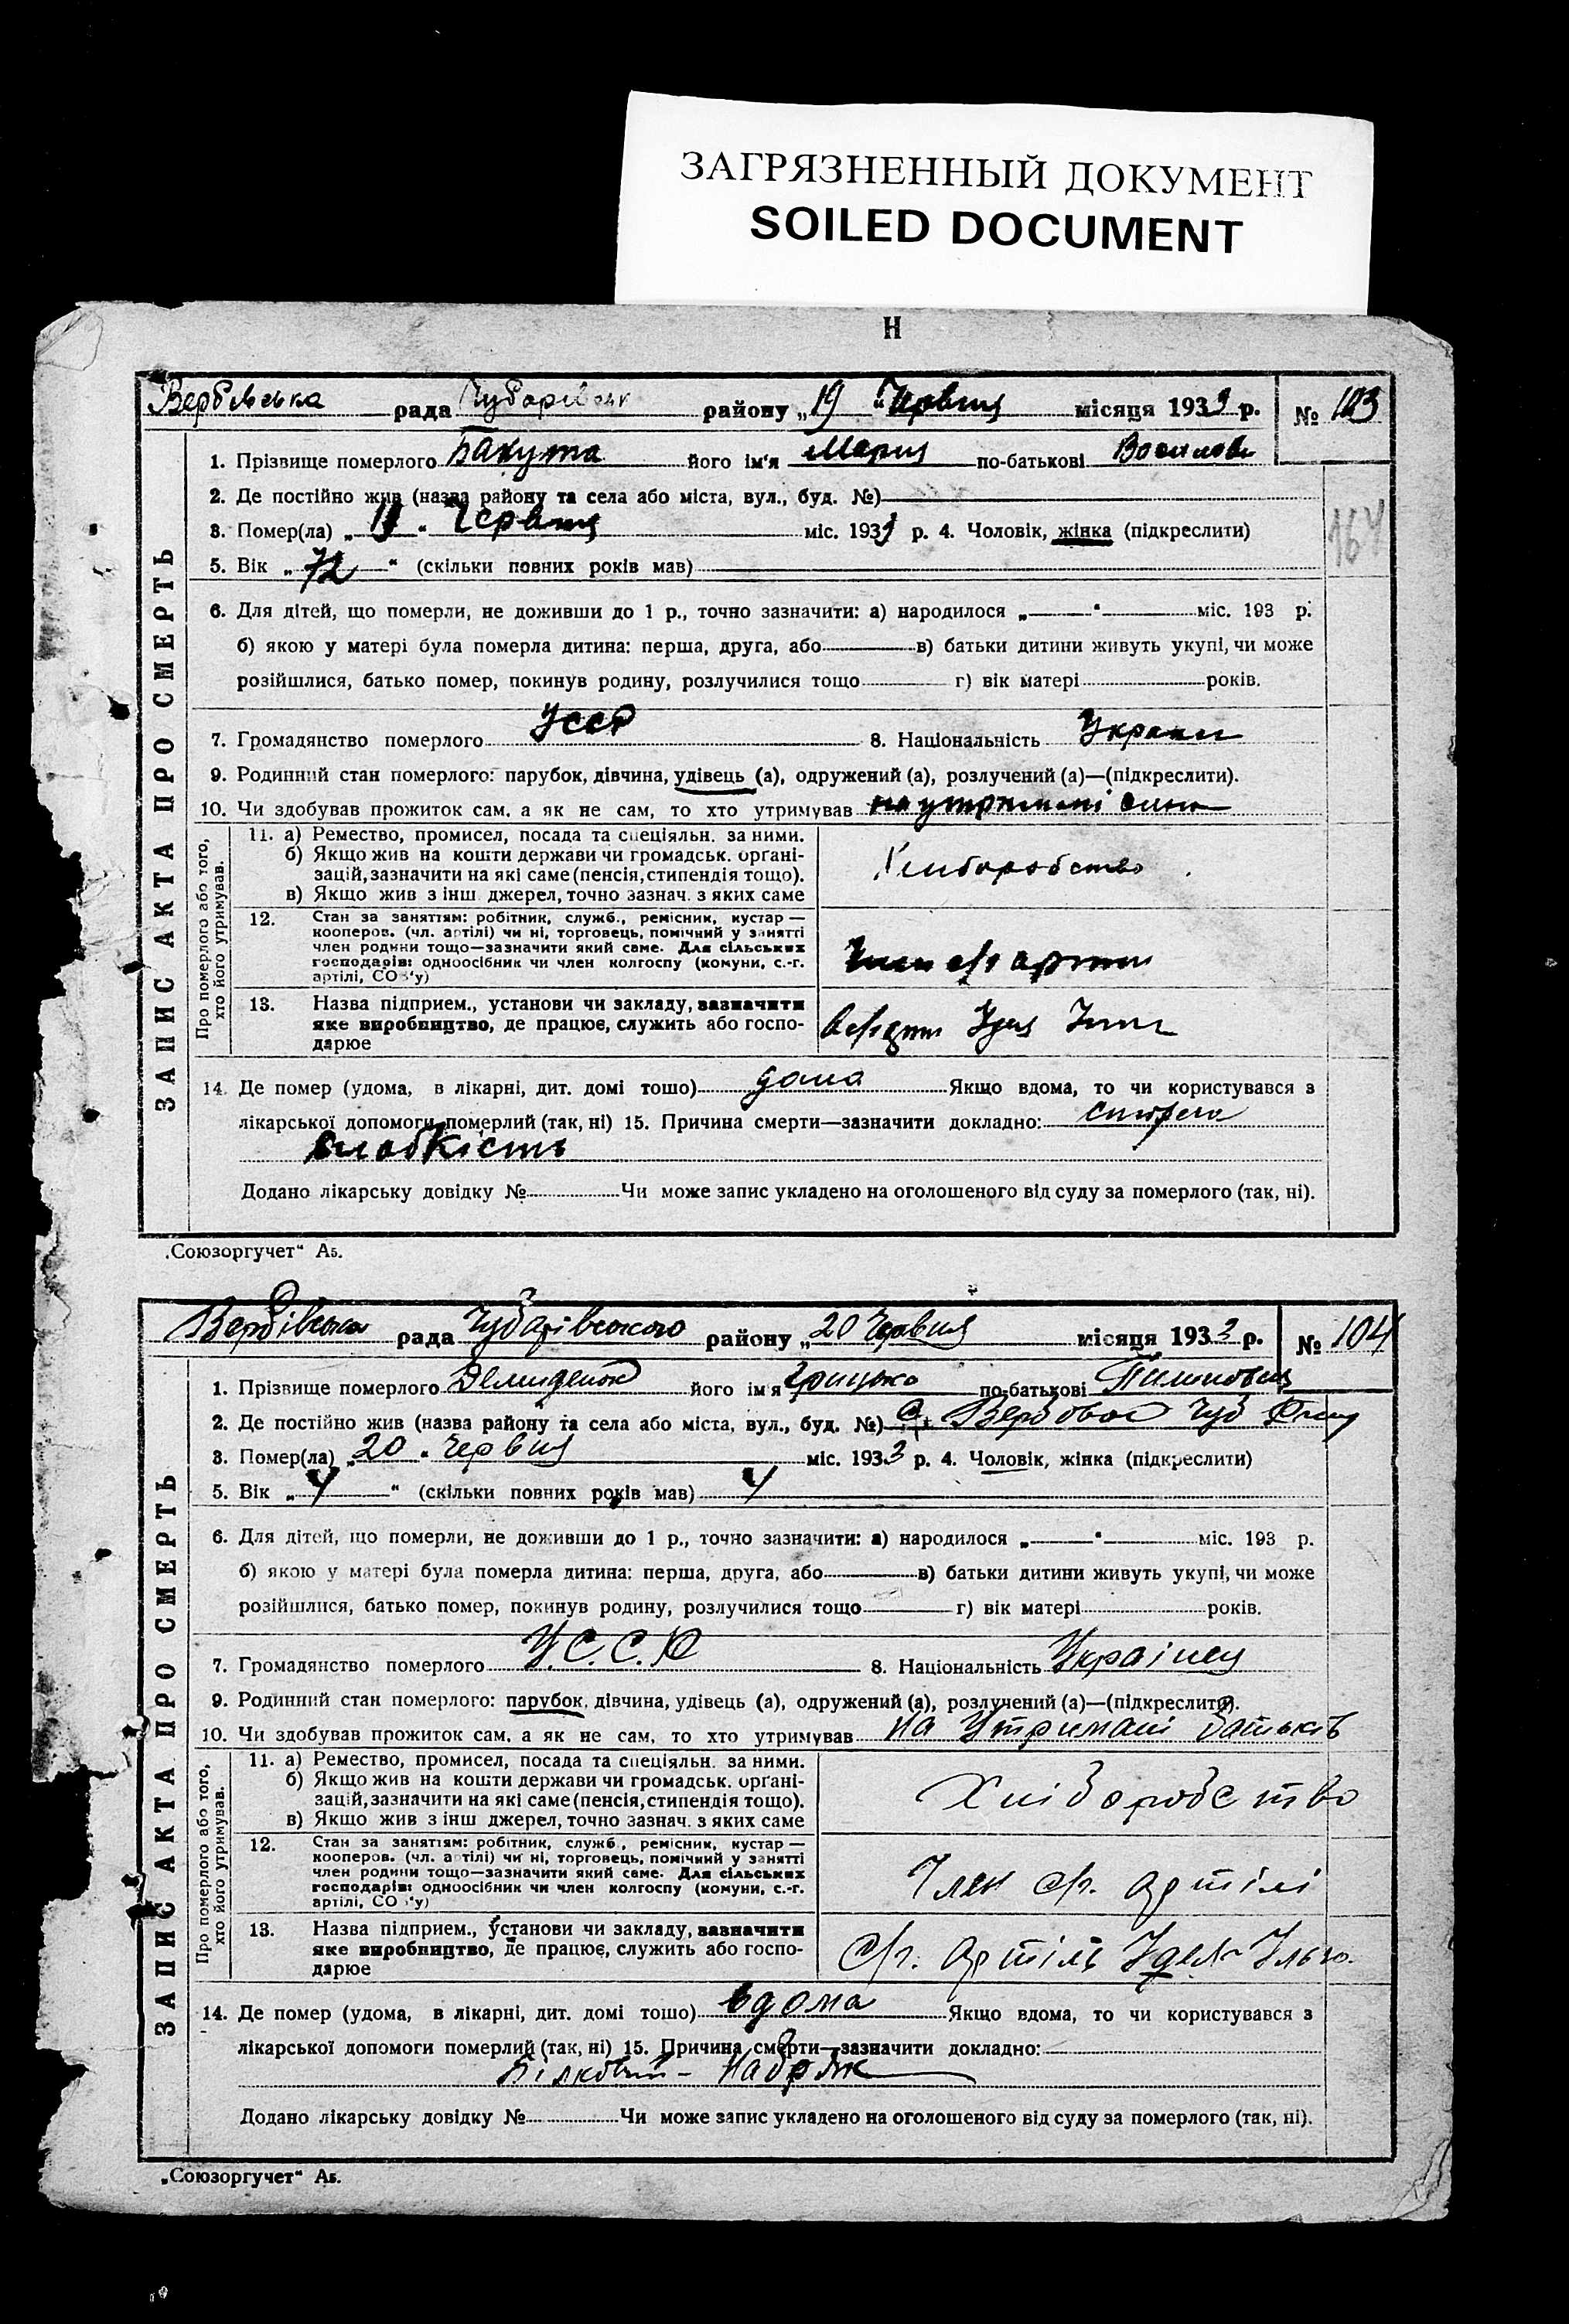 ЗАГРЯЗНЕННЫЙ ДОКУМЕНТ
SOILED DOCUMENT
Н
Вербівська рада Чубарівськ району „19 “ Червня місяця 1933 р. № 103
ЗАПИС АКТА ПРО СМЕРТЬ
1. Прізвище померлого Бакута його ім'я Мария по-батькові
2. Де постійно жив (назва району та села або міста, вул., буд. №)
3. Помер(ла) „ “ Червня міс. 1933 р. 4. Чоловік, жінка (підкреслити)
5. Вік „ 72 “ (скільки повних років мав)
6. Для дітей, що померли, не доживши до 1 р., точно зазначити: а) народилося „ “ міс. 193 р.
б) якою у матері була померла дитина: перша, друга, або в) батьки дитини живуть укупі, чи може
розійшлися, батько помер, покинув родину, розлучилися тощо г) вік матері років.
7. Громадянство померлого УССР 8. Національність
9. Родинний стан померлого: парубок, дівчина, удівець (а), одружений (а), розлучений (а)—(підкреслити).
10. Чи здобував прожиток сам, а як не сам, то хто утримував на утримані сина
Про померлого або того,
хто його утримував.
11. а) Ремество, промисел, посада та спеціяльн. за ними.
б) Якщо жив на кошти держави чи громадськ. орґані-
зацій, зазначити на які саме (пенсія, стипендія тощо).
в) Якщо жив з інш джерел, точно зазнач. з яких саме
Хліборобство
12. Стан за заняттям: робітник, служб., ремісник, кустар —
кооперов. (чл. артілі) чи ні, торговець, помічний у занятті
член родини тощо—зазначити який саме. Для сільських
господарів: одноосібник чи член колгоспу (комуни, с.-г.
артілі, СОЗ'у)
13. Назва підприєм., установи чи закладу, зазначити
яке виробництво, де працює, служить або госпо-
дарює
14. Де помер (удома, в лікарні, дит. домі тощо) дома Якщо вдома, то чи користувався з
лікарської допомоги померлий (так, ні) 15. Причина смерти—зазначити докладно:
слабкість
Додано лікарську довідку № Чи може запис укладено на оголошеного від суду за померлого (так, ні).
„Союзоргучет“ А5.
164
Вербівська рада Чубарівського району „20 Червня місяця 1933 р. № 104
ЗАПИС АКТА ПРО СМЕРТЬ
1. Прізвище померлого його ім'я Грицько по-батькові
2. Де постійно жив (назва району та села або міста, вул., буд. №) с. Вербове Чуб
3. Помер(ла) „20 “ Червня міс. 1933 р. 4. Чоловік, жінка (підкреслити)
5. Вік „ 4 “ (скільки повних років мав) 4
6. Для дітей, що померли, не доживши до 1 р., точно зазначити: а) народилося „ “ міс. 193 р.
б) якою у матері була померла дитина: перша, друга, або в) батьки дитини живуть укупі, чи може
розійшлися, батько помер, покинув родину, розлучилися тощо г) вік матері років.
7. Громадянство померлого У.С.С.Р 8. Національність Українец
9. Родинний стан померлого: парубок, дівчина, удівець (а), одружений (а), розлучений (а)—(підкреслити).
10. Чи здобував прожиток сам, а як не сам, то хто утримував на Утримані батьків
Про померлого або того,
хто його утримував.
11. а) Ремество, промисел, посада та спеціяльн. за ними.
б) Якщо жив на кошти держави чи громадськ. орґані-
зацій, зазначити на які саме (пенсія, стипендія тощо).
в) Якщо жив з інш джерел, точно зазнач. з яких саме
Хліборобство
12. Стан за заняттям: робітник, служб., ремісник, кустар —
кооперов. (чл. артілі) чи ні, торговець, помічний у занятті
член родини тощо—зазначити який саме. Для сільських
господарів: одноосібник чи член колгоспу (комуни, с.-г.
артілі, СОЗ'у)
Член с/г. артілі
13. Назва підприєм., установи чи закладу, зазначити
яке виробництво, де працює, служить або госпо-
дарює
с/г. артіль
14. Де помер (удома, в лікарні, дит. домі тощо) вдома Якщо вдома, то чи користувався з
лікарської допомоги померлий (так, ні) 15. Причина смерти—зазначити докладно:
Білковий - Набряк
Додано лікарську довідку № Чи може запис укладено на оголошеного від суду за померлого (так, ні).
„Союзоргучет“ А5.